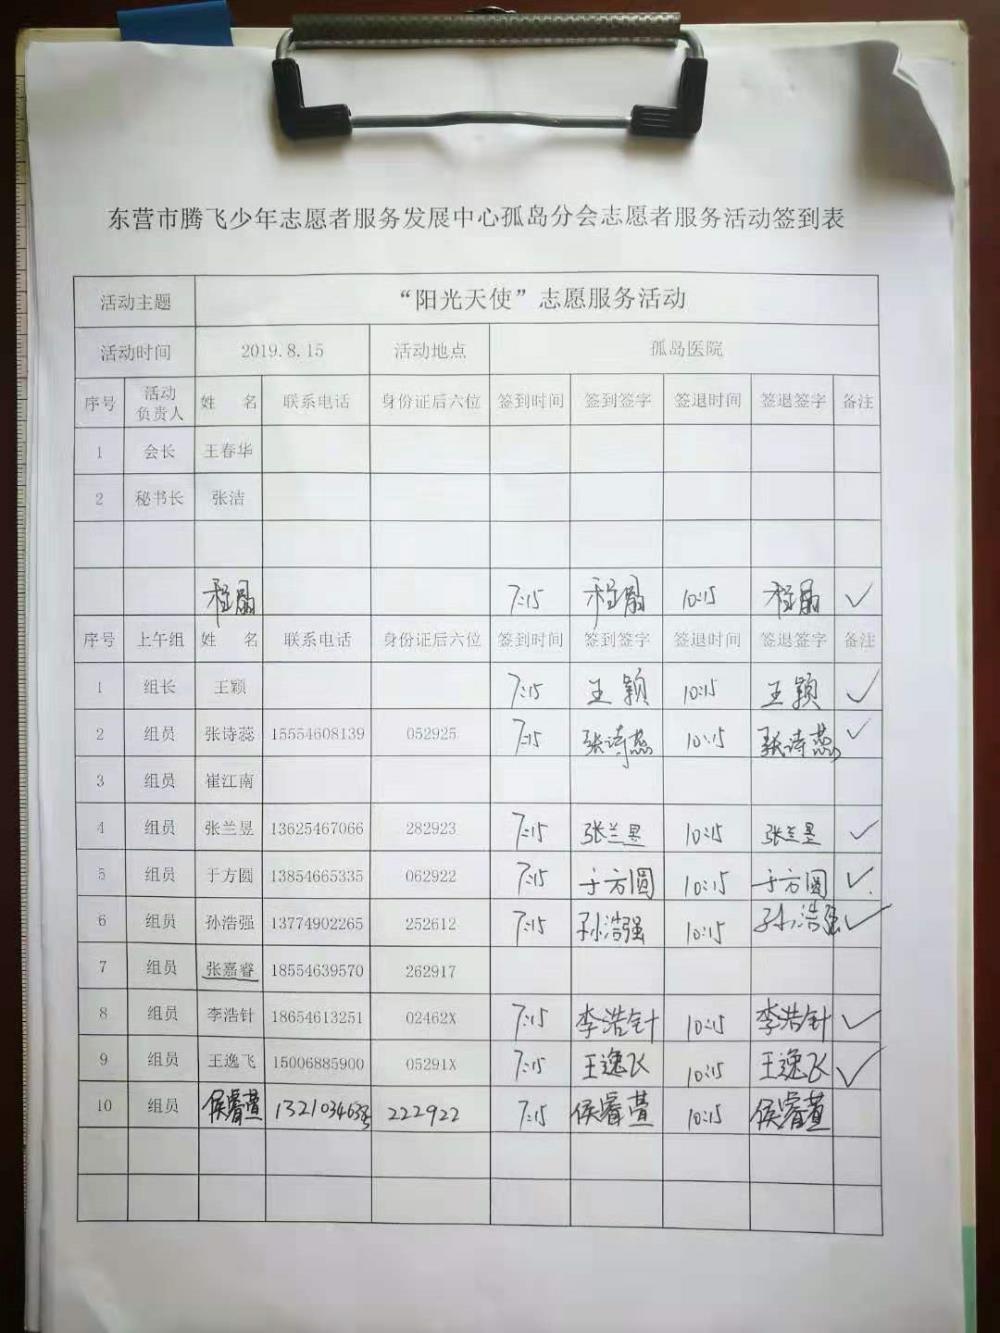 东营市腾飞少年志愿者服务发展中心孤岛分会志愿者服务活动签到表
活动主题 “阳光天使”志愿服务活动
活动时间 2019.8.15 活动地点 孤岛医院
序号 活动负责人 姓 名 联系电话 身份证后六位 签到时间 签到签字 签退时间 签退签字 备注
1 会长 王春华
2 秘书长 张洁
程晶 7:15 程晶 10:15 程晶 ✓
序号 上午组 姓 名 联系电话 身份证后六位 签到时间 签到签字 签退时间 签退签字 备注
1 组长 王颖 7:15 王颖 10:15 王颖 ✓
2 组员 张诗蕊 15554608139 052925 7:15 张诗蕊 10:15 张诗蕊 ✓
3 组员 崔江南
4 组员 张兰昱 13625467066 282923 7:15 张兰昱 10:15 张兰昱 ✓
5 组员 于方圆 13854665335 062922 7:15 于方圆 10:15 于方圆 ✓
6 组员 孙浩强 13774902265 252612 7:15 孙浩强 10:15 孙浩强 ✓
7 组员 张嘉睿 18554639570 262917
8 组员 李浩针 18654613251 02462X 7:15 李浩针 10:15 李浩针 ✓
9 组员 王逸飞 15006885900 05291X 7:15 王逸飞 10:15 王逸飞 ✓
10 组员 侯睿萱 222922 7:15 侯睿萱 10:15 侯睿萱